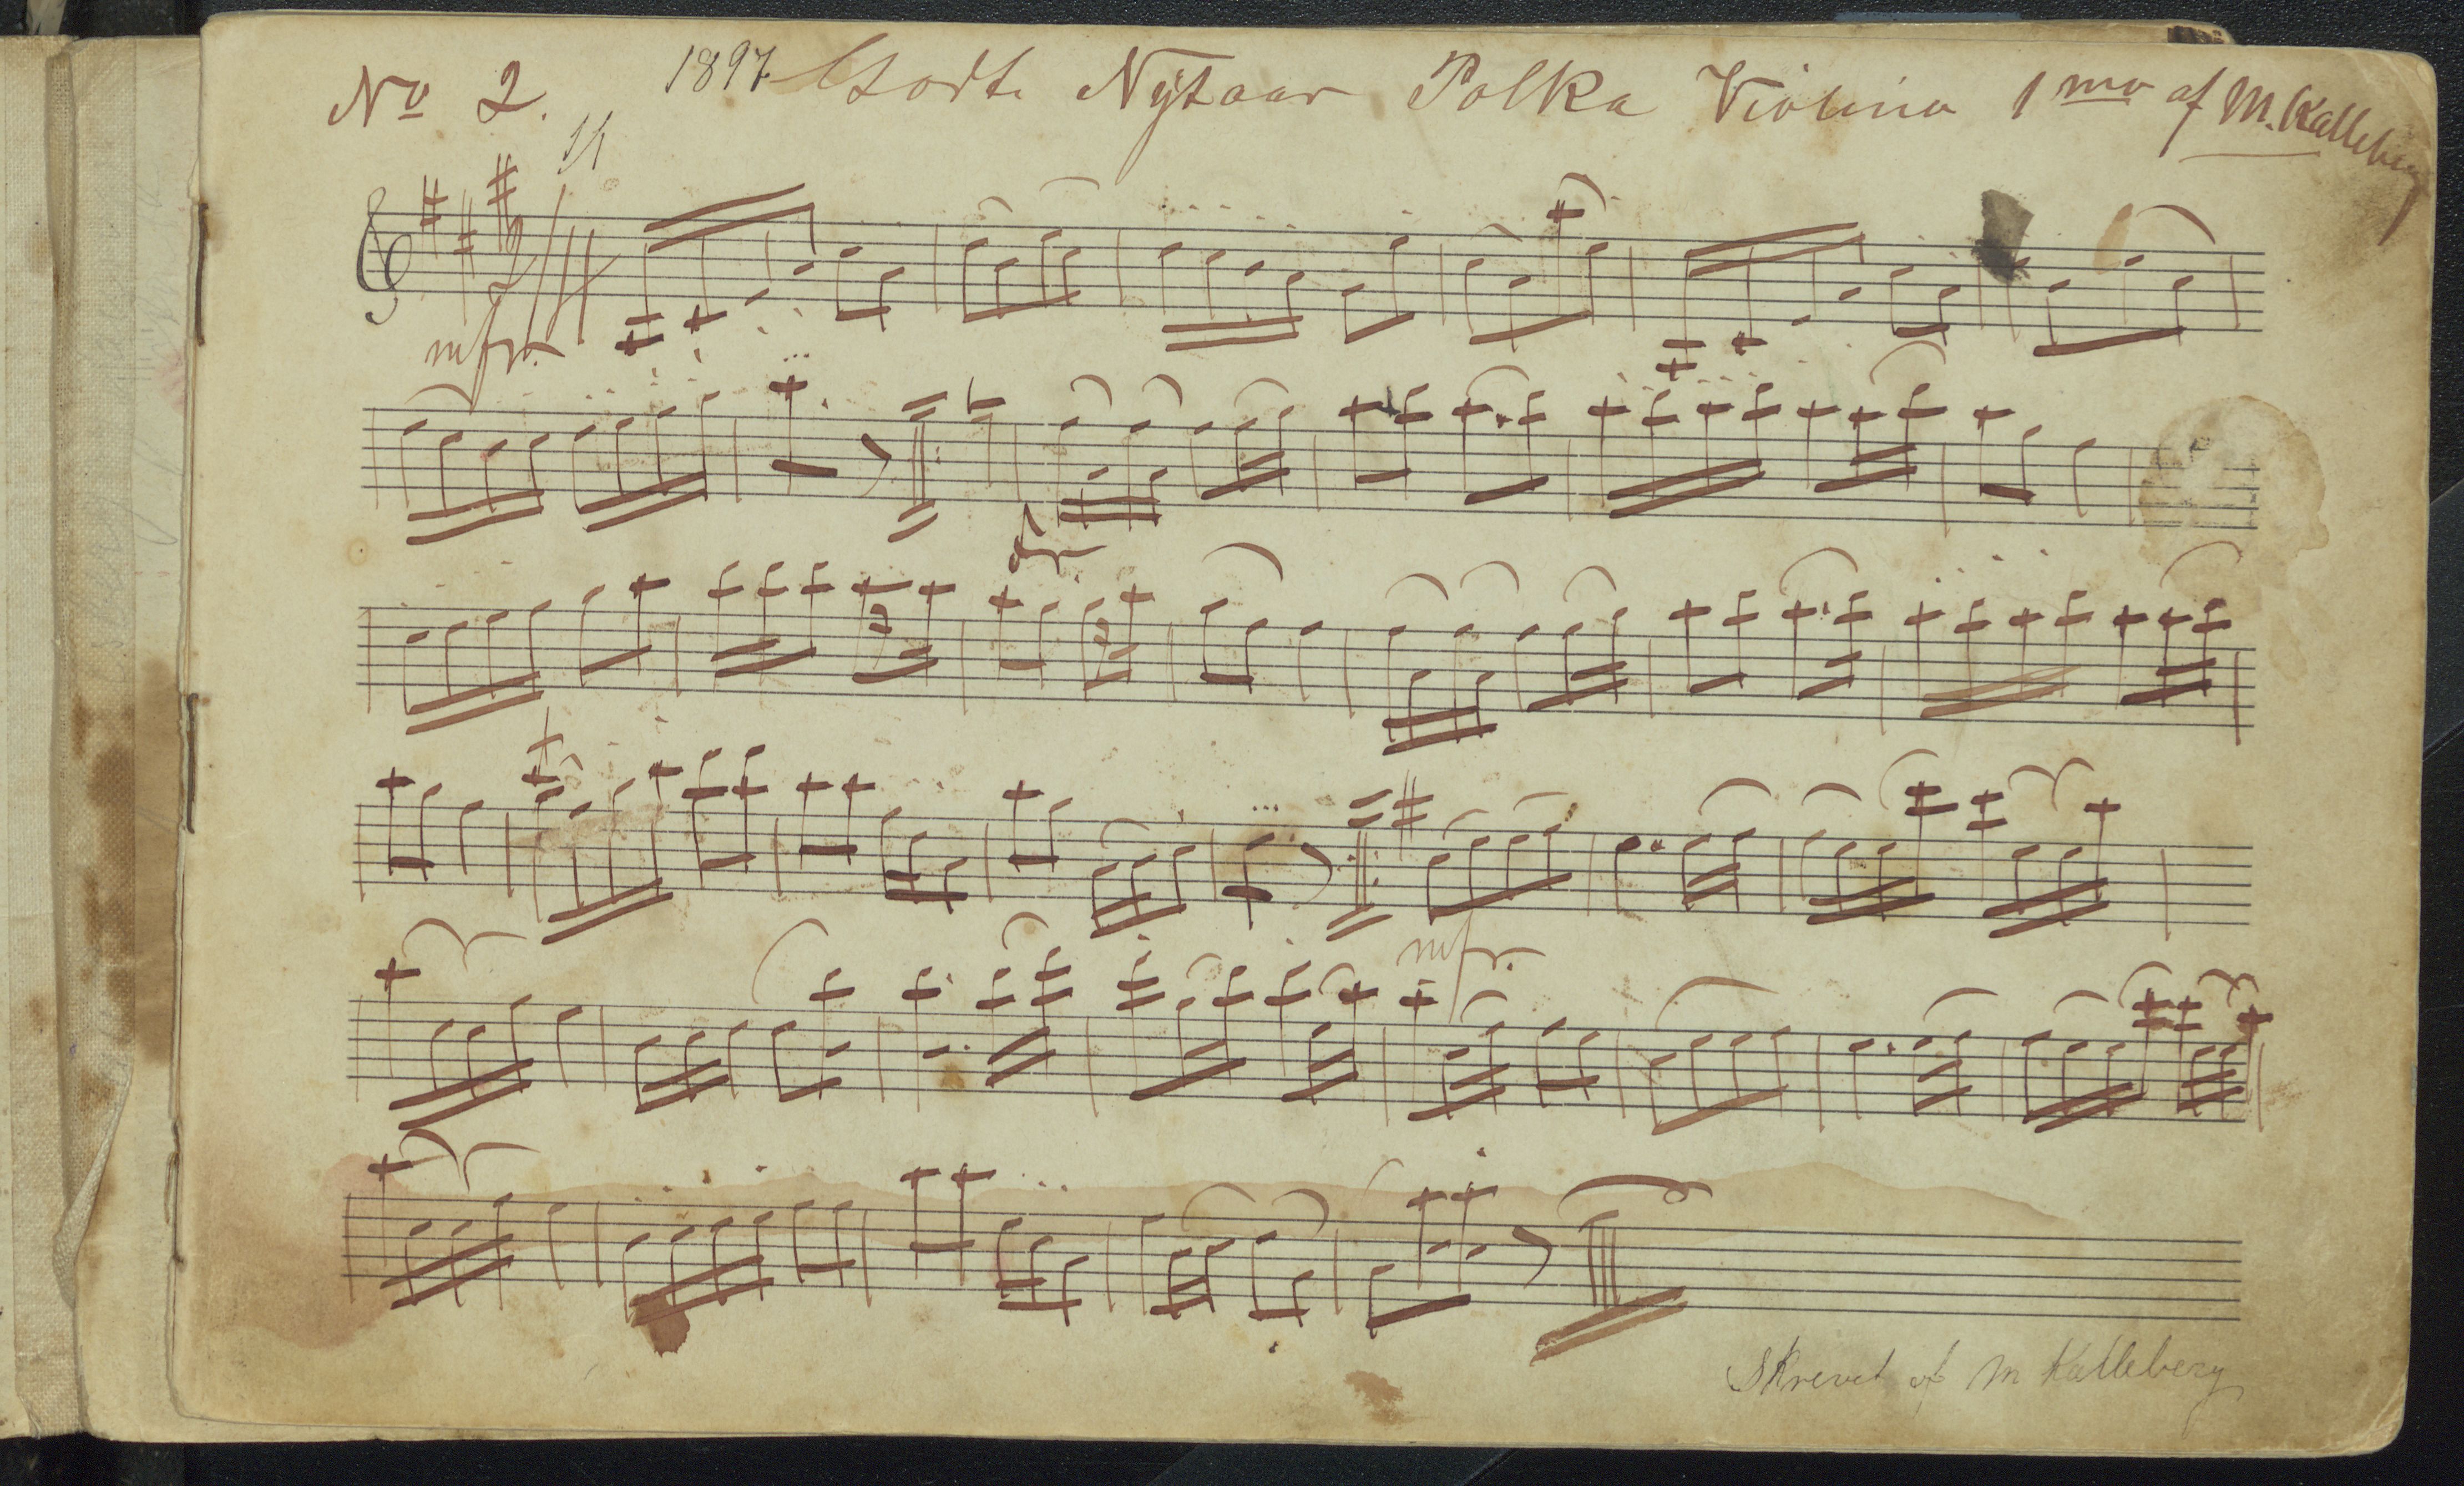 No 2. 1897 Godt Nÿtaar Polka Violino 1mo af M. Kalleberg
mf
f
mf
Skrevet af M Kalleberg